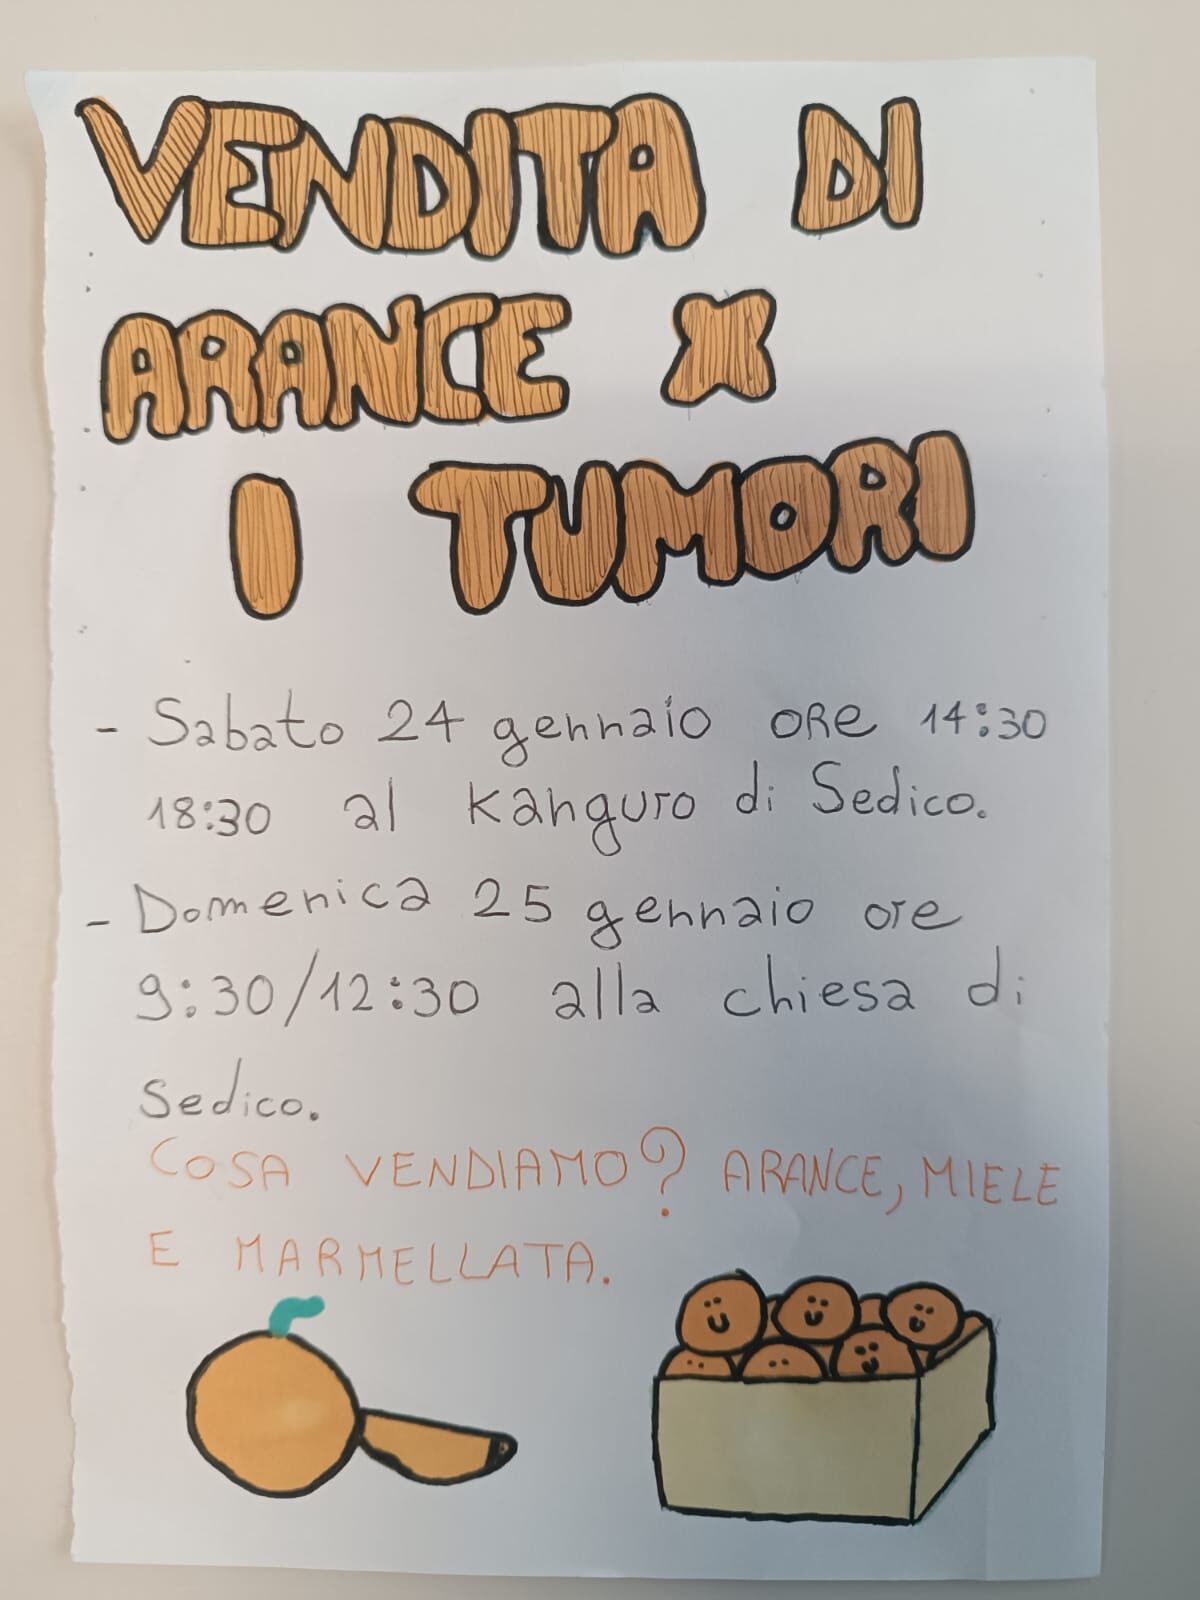 VENDITA DI
ARANCE X
I TUMORI
- Sabato 24 gennaio ORe 14:30
18:30 al Kanguro di Sedico.
- Domenica 25 gennaio ore
9:30/12:30 alla chiesa di
Sedico.
COSA VENDIAMO? ARANCE, MIELE
E MARMELLATA.